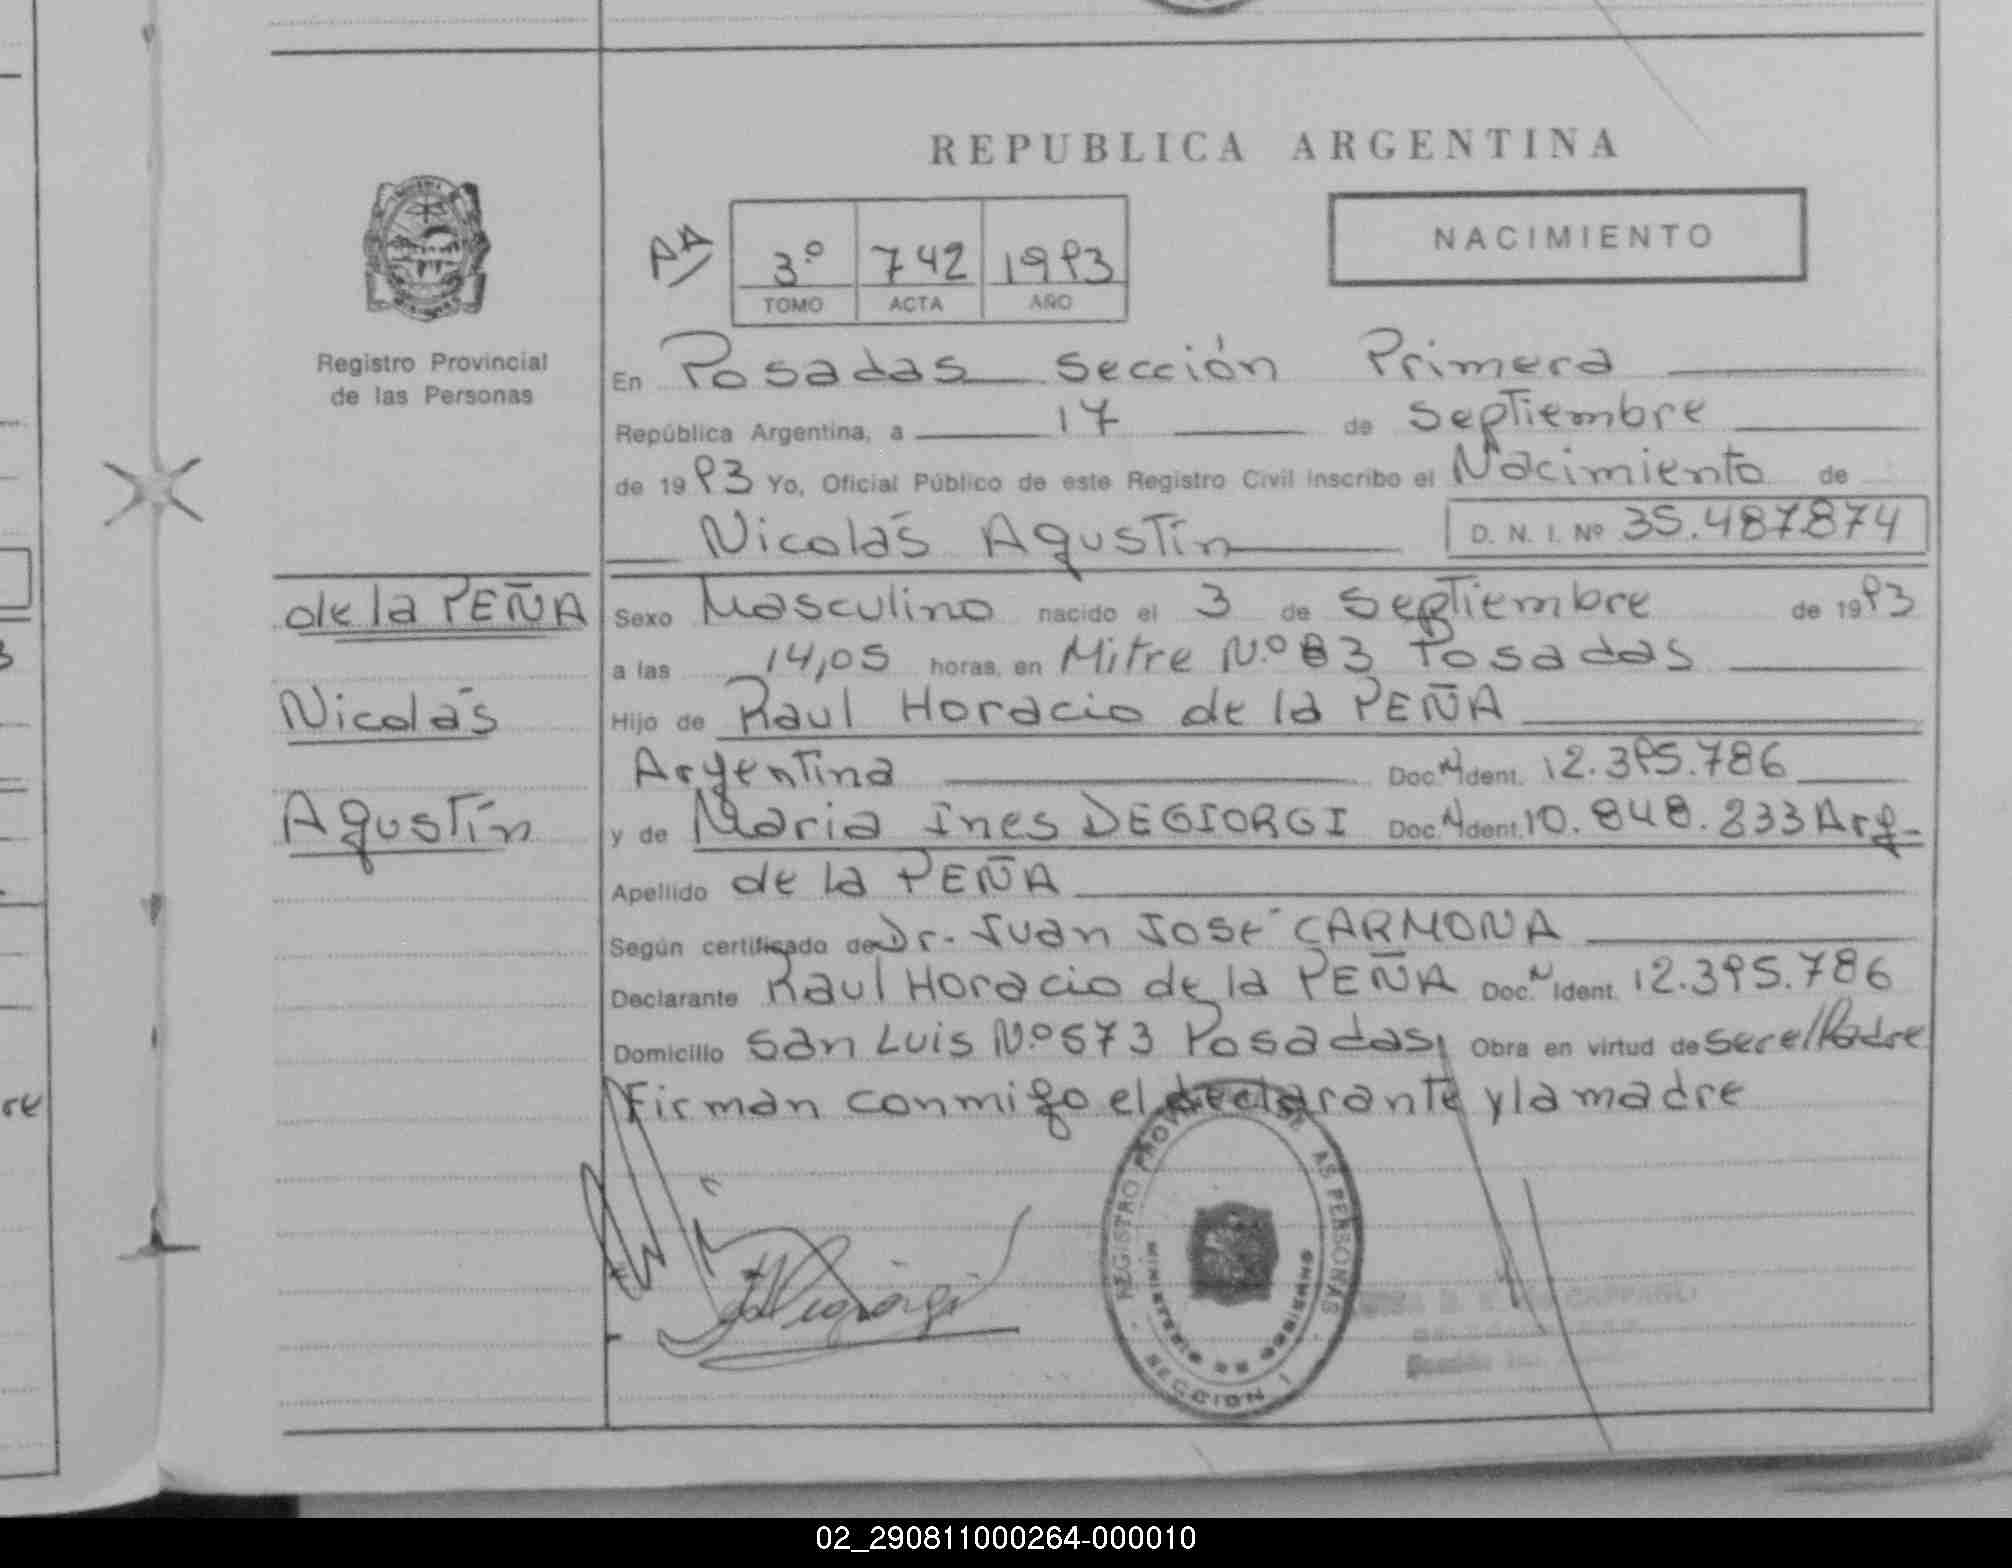 REPUBLICA ARGENTINA
AA
3.º 742 1993
TOMO ACTA AÑO
NACIMIENTO
Registro Provincial
de las Personas
En Posadas Sección Primera
República Argentina, a 17 de septiembre
de 19 93 Yo, Oficial Público de este Registro Civil inscribo el Nacimiento de
Nicolás Agustín D. N. I. Nº 35.487.874
de la PEÑA
Nicolás
Agustín
Sexo Masculino nacido el 3 de septiembre de 19 93
a las 14,05 horas, en Mitre N.º 83 Posadas
Hijo de Raul Horacio de la PEÑA
Argentina Doc. N Ident. 12.395.786
y de Maria Ines DEGIORGI Doc. N Ident. 10.848.833 Arg-
Apellido de la PEÑA
Según certificado de Dr. Juan José CARMONA
Declarante Raul Horacio de la PEÑA Doc. N Ident. 12.395.786
Domicilio san Luis N.º 573 Posadas, Obra en virtud de ser el Padre
Firman conmigo el declarante y la madre
REGISTRO PROVINCIAL DE LAS PERSONAS
MINISTERIO DE GOBIERNO
SECCION 1
02_290811000264-000010